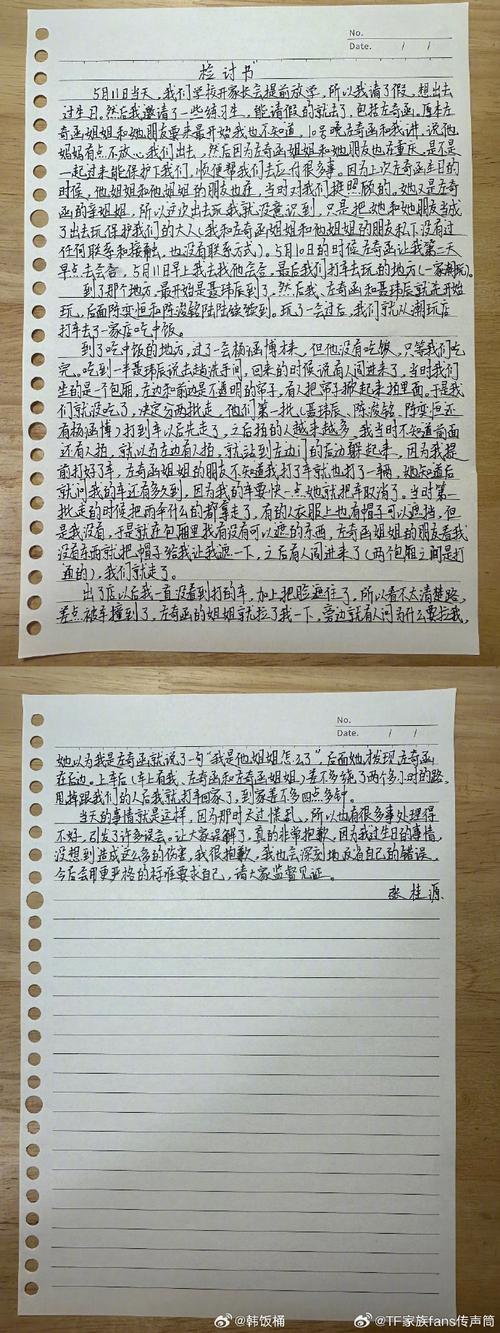 No.
Date. / /
检讨书
5月11日当天，我们学校开家长会提前放学，所以我请了假，想出去
过生日。然后我邀请了一些练习生，能请假的就去了，包括左奇函。原本左
奇函姐姐和她朋友要来最开始我也不知道，10号晚左奇函和我讲，说他
妈妈有点不放心我们出去，然后因为左奇函姐姐和她朋友也在重庆，是不是
一起过来能保护下我们，顺便帮我们去应付很多事。因为上次左奇函生日的
时候，他姐姐和他姐姐的朋友也在，当时对我们挺照顾的，她又是左奇
函的亲姐姐，所以这次出去玩我就没意识到，只是把她和她朋友当成
了出去玩保护我们的大人（我和左奇函姐姐和他姐姐的朋友私下没有过
任何联系和接触，也没有联系方式）。5月10日的时候左奇函让我第二天
早点去会合，5月11日早上我去找他会合，最后我们打车去玩的地方（一家潮玩）。
到了那个地方，最开始是聂玮辰到了，然后我、左奇函和聂玮辰就先开始
玩，后面陈奕恒和陈浚铭陆陆续续到。玩了一会过后，我们就从潮玩店
打车去了一家店吃中饭。
到了吃中饭的地方，过了一会杨涵博才来，但他没有吃饭，只等我们吃
完。吃到一半聂玮辰说出去趟洗手间，回来的时候说有人闯进来了，当时我们
坐的是个包厢，左边和前边是不透明的帘子，有人把帘子掀起来拍里面。于是我
们就没吃了，决定分两批走，他们第一批（聂玮辰、陈浚铭、陈奕恒还
有杨涵博）打到车以后先走了，之后拍的人越来越多，我当时不知道前面
还有人拍，就以为左边有人拍，就站到左边门的后边躲起来，因为我提
前打好了车，左奇函姐姐的朋友不知道我打了车就也打了一辆，她知道后
就问我的车还有多久到，因为我的车要快一点她就把车取消了，当时第一
批走的时候把雨伞什么的都拿走了，有的人衣服上也有帽子可以遮挡，但
是我没有，于是就在包厢里找有没有可以遮的东西，左奇函姐姐的朋友看我
没有东西就把帽子给我让我遮一下，之后有人闯进来了（两个包厢之间是打
通的），我们就走了。
出了店以后我一直没看到打的车，加上把脸遮住了，所以看不太清楚路，
差点被车撞到了，左奇函的姐姐就拉了我一下，旁边就有人问为什么要拉我，
No.
Date. / /
她以为我是左奇函就说了一句“我是他姐姐怎么了”，后面她才发现左奇函
在后边。上车后（车上有我、左奇函和左奇函姐姐）差不多绕了两个多小时的路，
甩掉跟我们的人后我就打车回家了，到家差不多四点多钟。
当天的事情就是这样，因为那时太慌乱，所以也有很多事处理得
不好，引发了许多误会。让大家误解了，真的非常抱歉，因为我过生日的事情，
没想到造成这么多的伤害，我很抱歉，我也会深刻地反省自己的错误，
今后会用更严格的标准要求自己，请大家监督见证。
张桂源
@韩饭桶 @TF家族fans传声筒